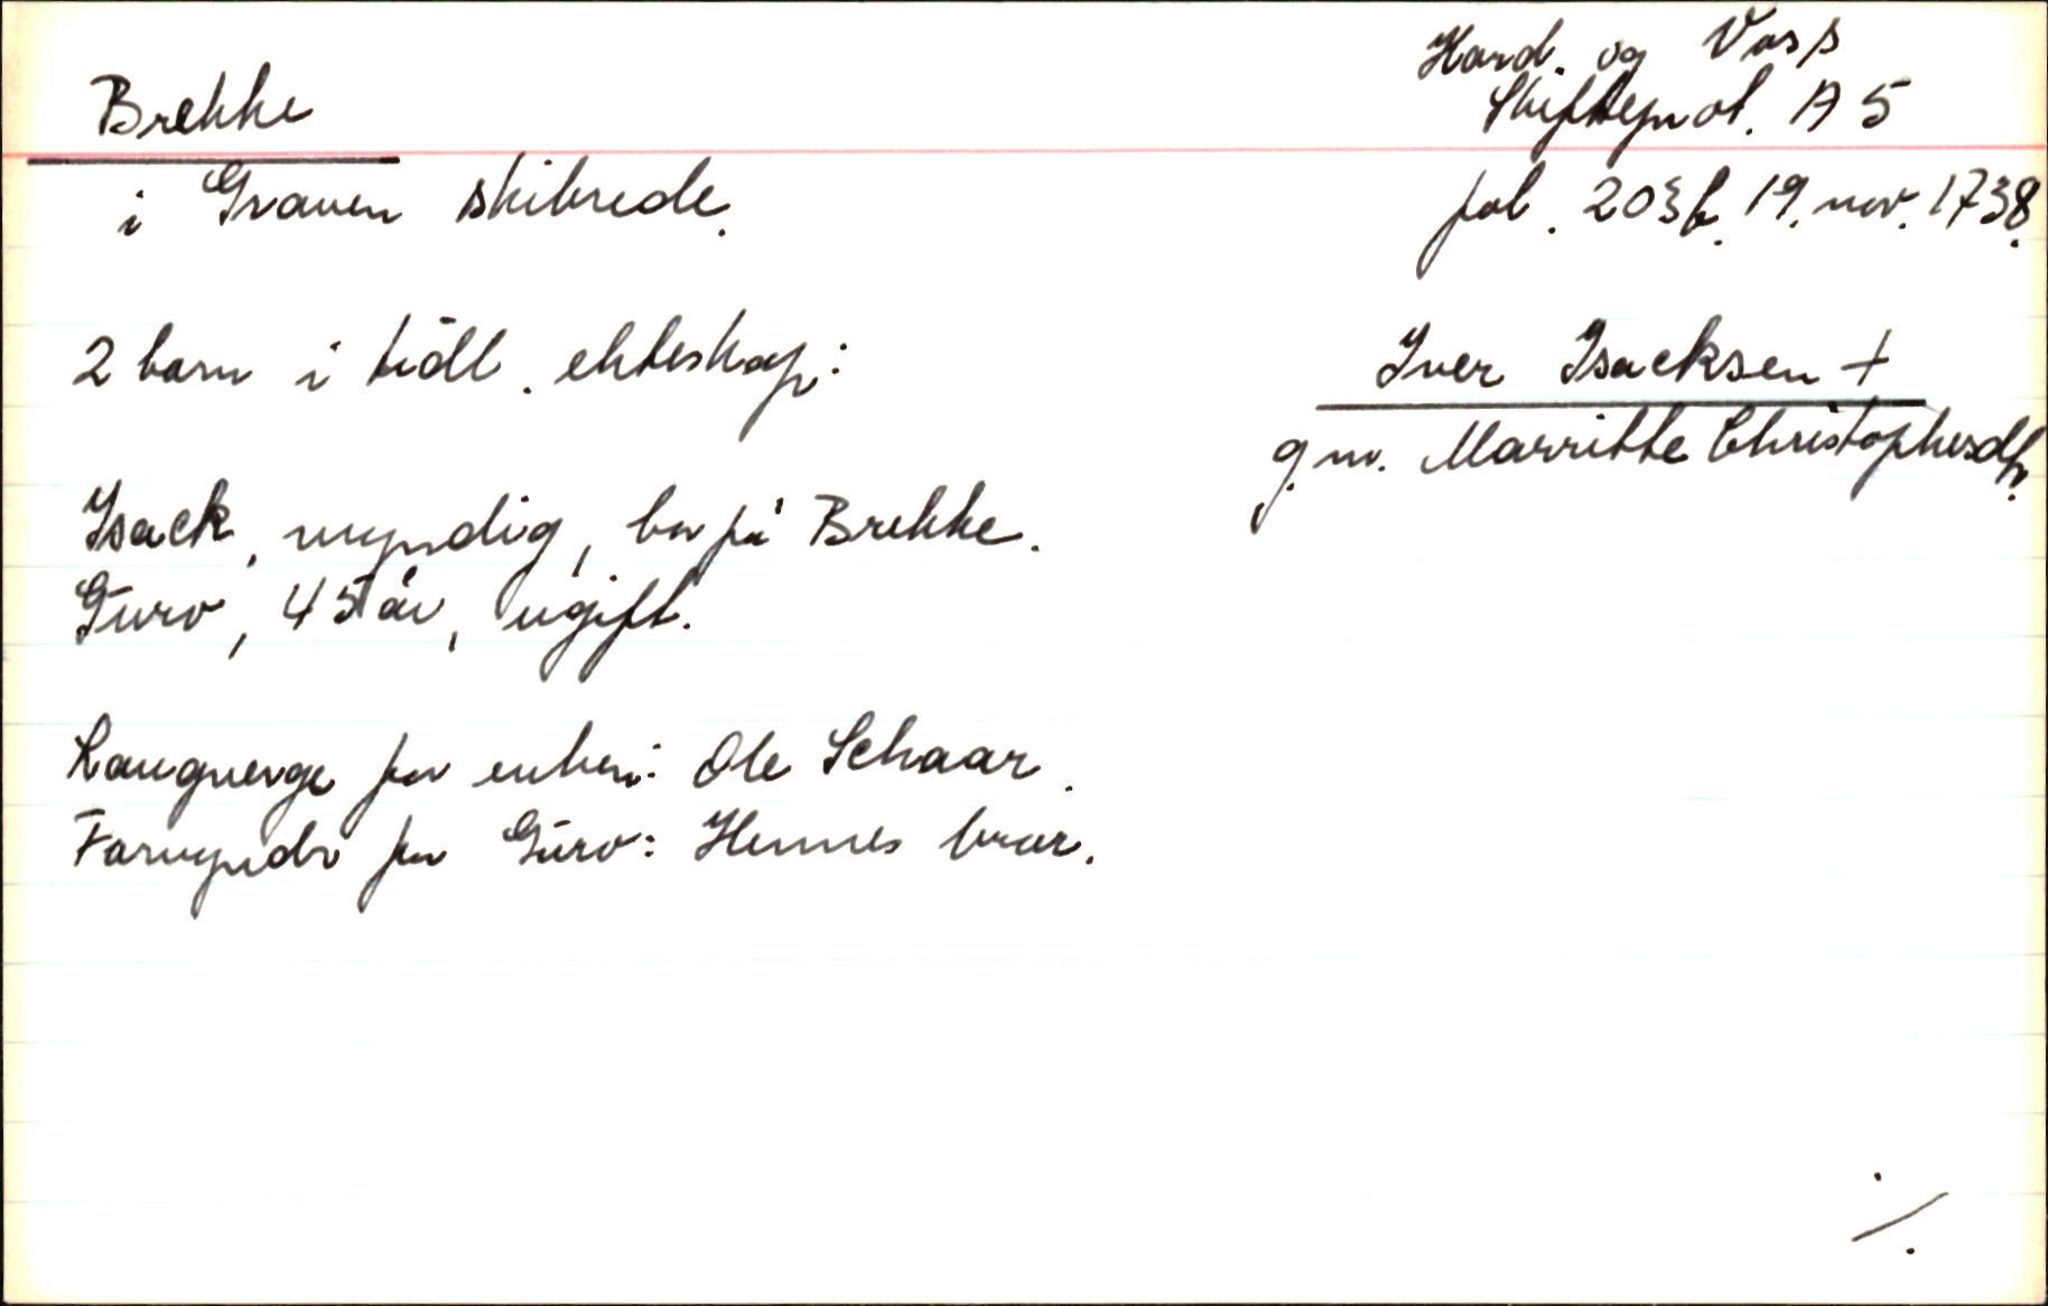 Brekke
i Graven skibrede.
Hard. og Voss
Skifteprot. A 5
fol. 203b. 19. nov. 1738.
Iver Isacksen +
g.m. Marritte Christophersdtr.
2 barn i tidl. ekteskap:
Isack, myndig, bor på Brekke.
Guro, 45 år, ugift.
Laugverge for enken: Ole Schaar.
Formynder for Guro: Hennes bror.
./.